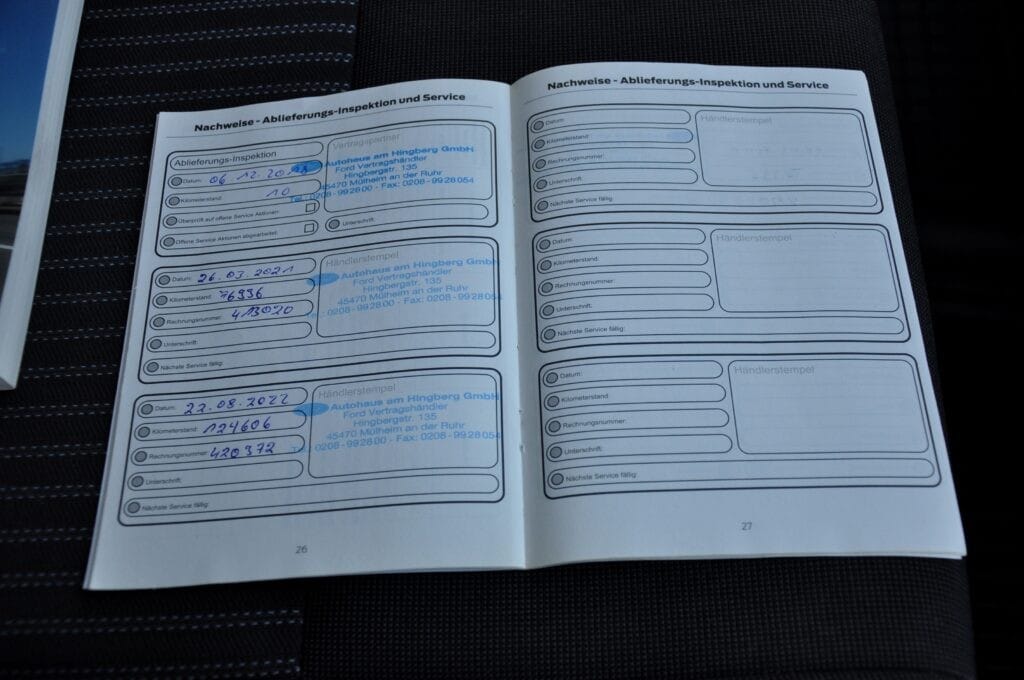 Nachweise - Ablieferungs-Inspektion und Service
Ablieferungs-Inspektion
Datum: 06.12.
Kilometerstand: 10
Überprüft auf offene Service Aktionen
Offene Service Aktionen abgearbeitet:
Vertragspartner
Autohaus am Hingberg GmbH
Ford Vertragshändler
Hingbergstr. 135
45470 Mülheim an der Ruhr
Tel.: 0208-992800 - Fax: 0208-9928054
Unterschrift:
Datum: 26.03.2021
Kilometerstand: 76996
Rechnungsnummer: 413020
Unterschrift:
Nächste Service fällig:
Händlerstempel
Autohaus am Hingberg GmbH
Ford Vertragshändler
Hingbergstr. 135
45470 Mülheim an der Ruhr
Tel.: 0208-992800 - Fax: 0208-9928054
Datum: 22.08.2022
Kilometerstand: 124606
Rechnungsnummer: 420372
Unterschrift:
Nächste Service fällig:
Händlerstempel
Autohaus am Hingberg GmbH
Ford Vertragshändler
Hingbergstr. 135
45470 Mülheim an der Ruhr
Tel.: 0208-992800 - Fax: 0208-9928054
26
Nachweise - Ablieferungs-Inspektion und Service
Datum:
Kilometerstand:
Rechnungsnummer:
Unterschrift:
Nächste Service fällig:
Händlerstempel
Datum:
Kilometerstand:
Rechnungsnummer:
Unterschrift:
Nächste Service fällig:
Händlerstempel
Datum:
Kilometerstand
Rechnungsnummer:
Unterschrift:
Nächste Service fällig:
Händlerstempel
27